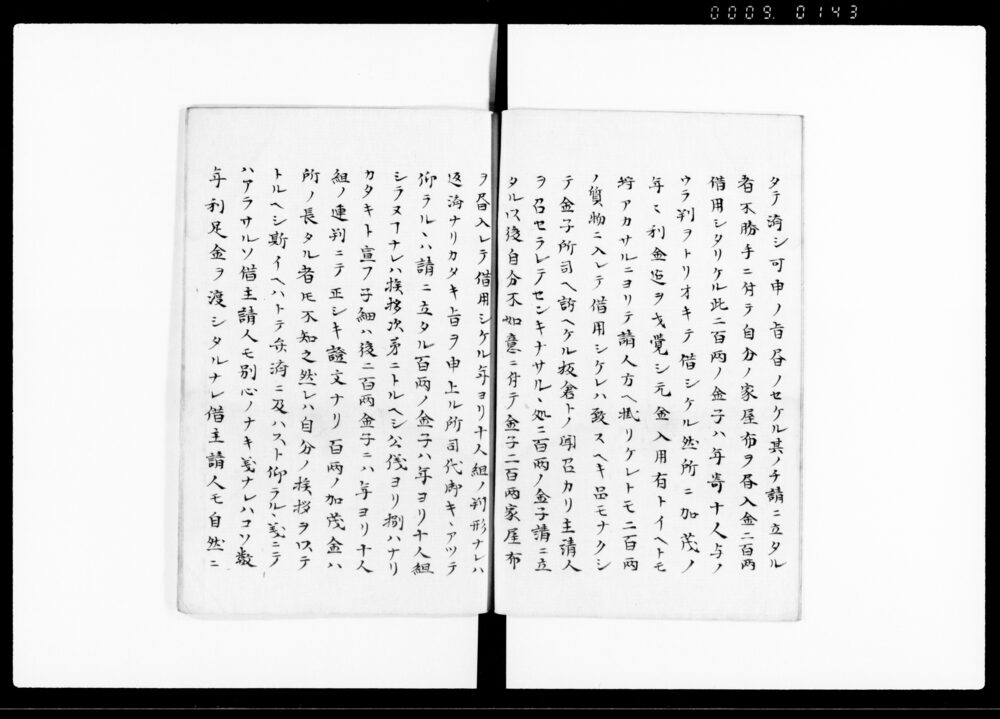 0009 0143
タテ済シ可申ノ旨書ノセケル其ノチ請ニ立タル
者不勝手ニ付テ自分ノ家屋布ヲ書入金二百両
借用シタリケル此二百両ノ金子ハ年寄十人与ノ
ウラ判ヲトリオキテ借シケル然所ニ加茂ノ
年々利金迄ヲ才覚シ元金入用有トイヘトモ
埒アカサルニヨリテ請人方ヘ掛リケレトモ二百両
ノ質物ニ入レテ借用シケレハ致スヘキ品モナクシ
テ金子所司ヘ訴ヘケル板倉トノ聞召カリ主請人
ヲ召セラレテセンキナサルヽ処ニ百両ノ金子請ニ立
タル以後自分不如意ニ付テ金子二百両家屋布
ヲ書入レテ借用シケル年ヨリ十人組ノ判形ナレハ
返済ナリカタキ旨ヲ申上ル所司代御キヽアツテ
仰ラルヽハ請ニ立タル百両ノ金子ハ年ヨリ十人組
シラヌ事ナレハ挨拶次第ニトルヘシ公儀ヨリ捌ハナリ
カタキト宣フ子細ハ後ニ百両金子ニハ年ヨリ十人
組ノ連判ニテ正シキ證文ナリ百両ノ加茂金ハ
所ノ長タル者モ不知之然レハ自分ノ挨拶ヲ以テ
トルヘシ斯イヘハトテ弁済ニ及ハスト仰ラルヽ義ニテ
ハアラサルソ借主請人モ別心ノナキ義ナレハコソ数
年利足金ヲ渡シタルナレ借主請人モ自然ニ